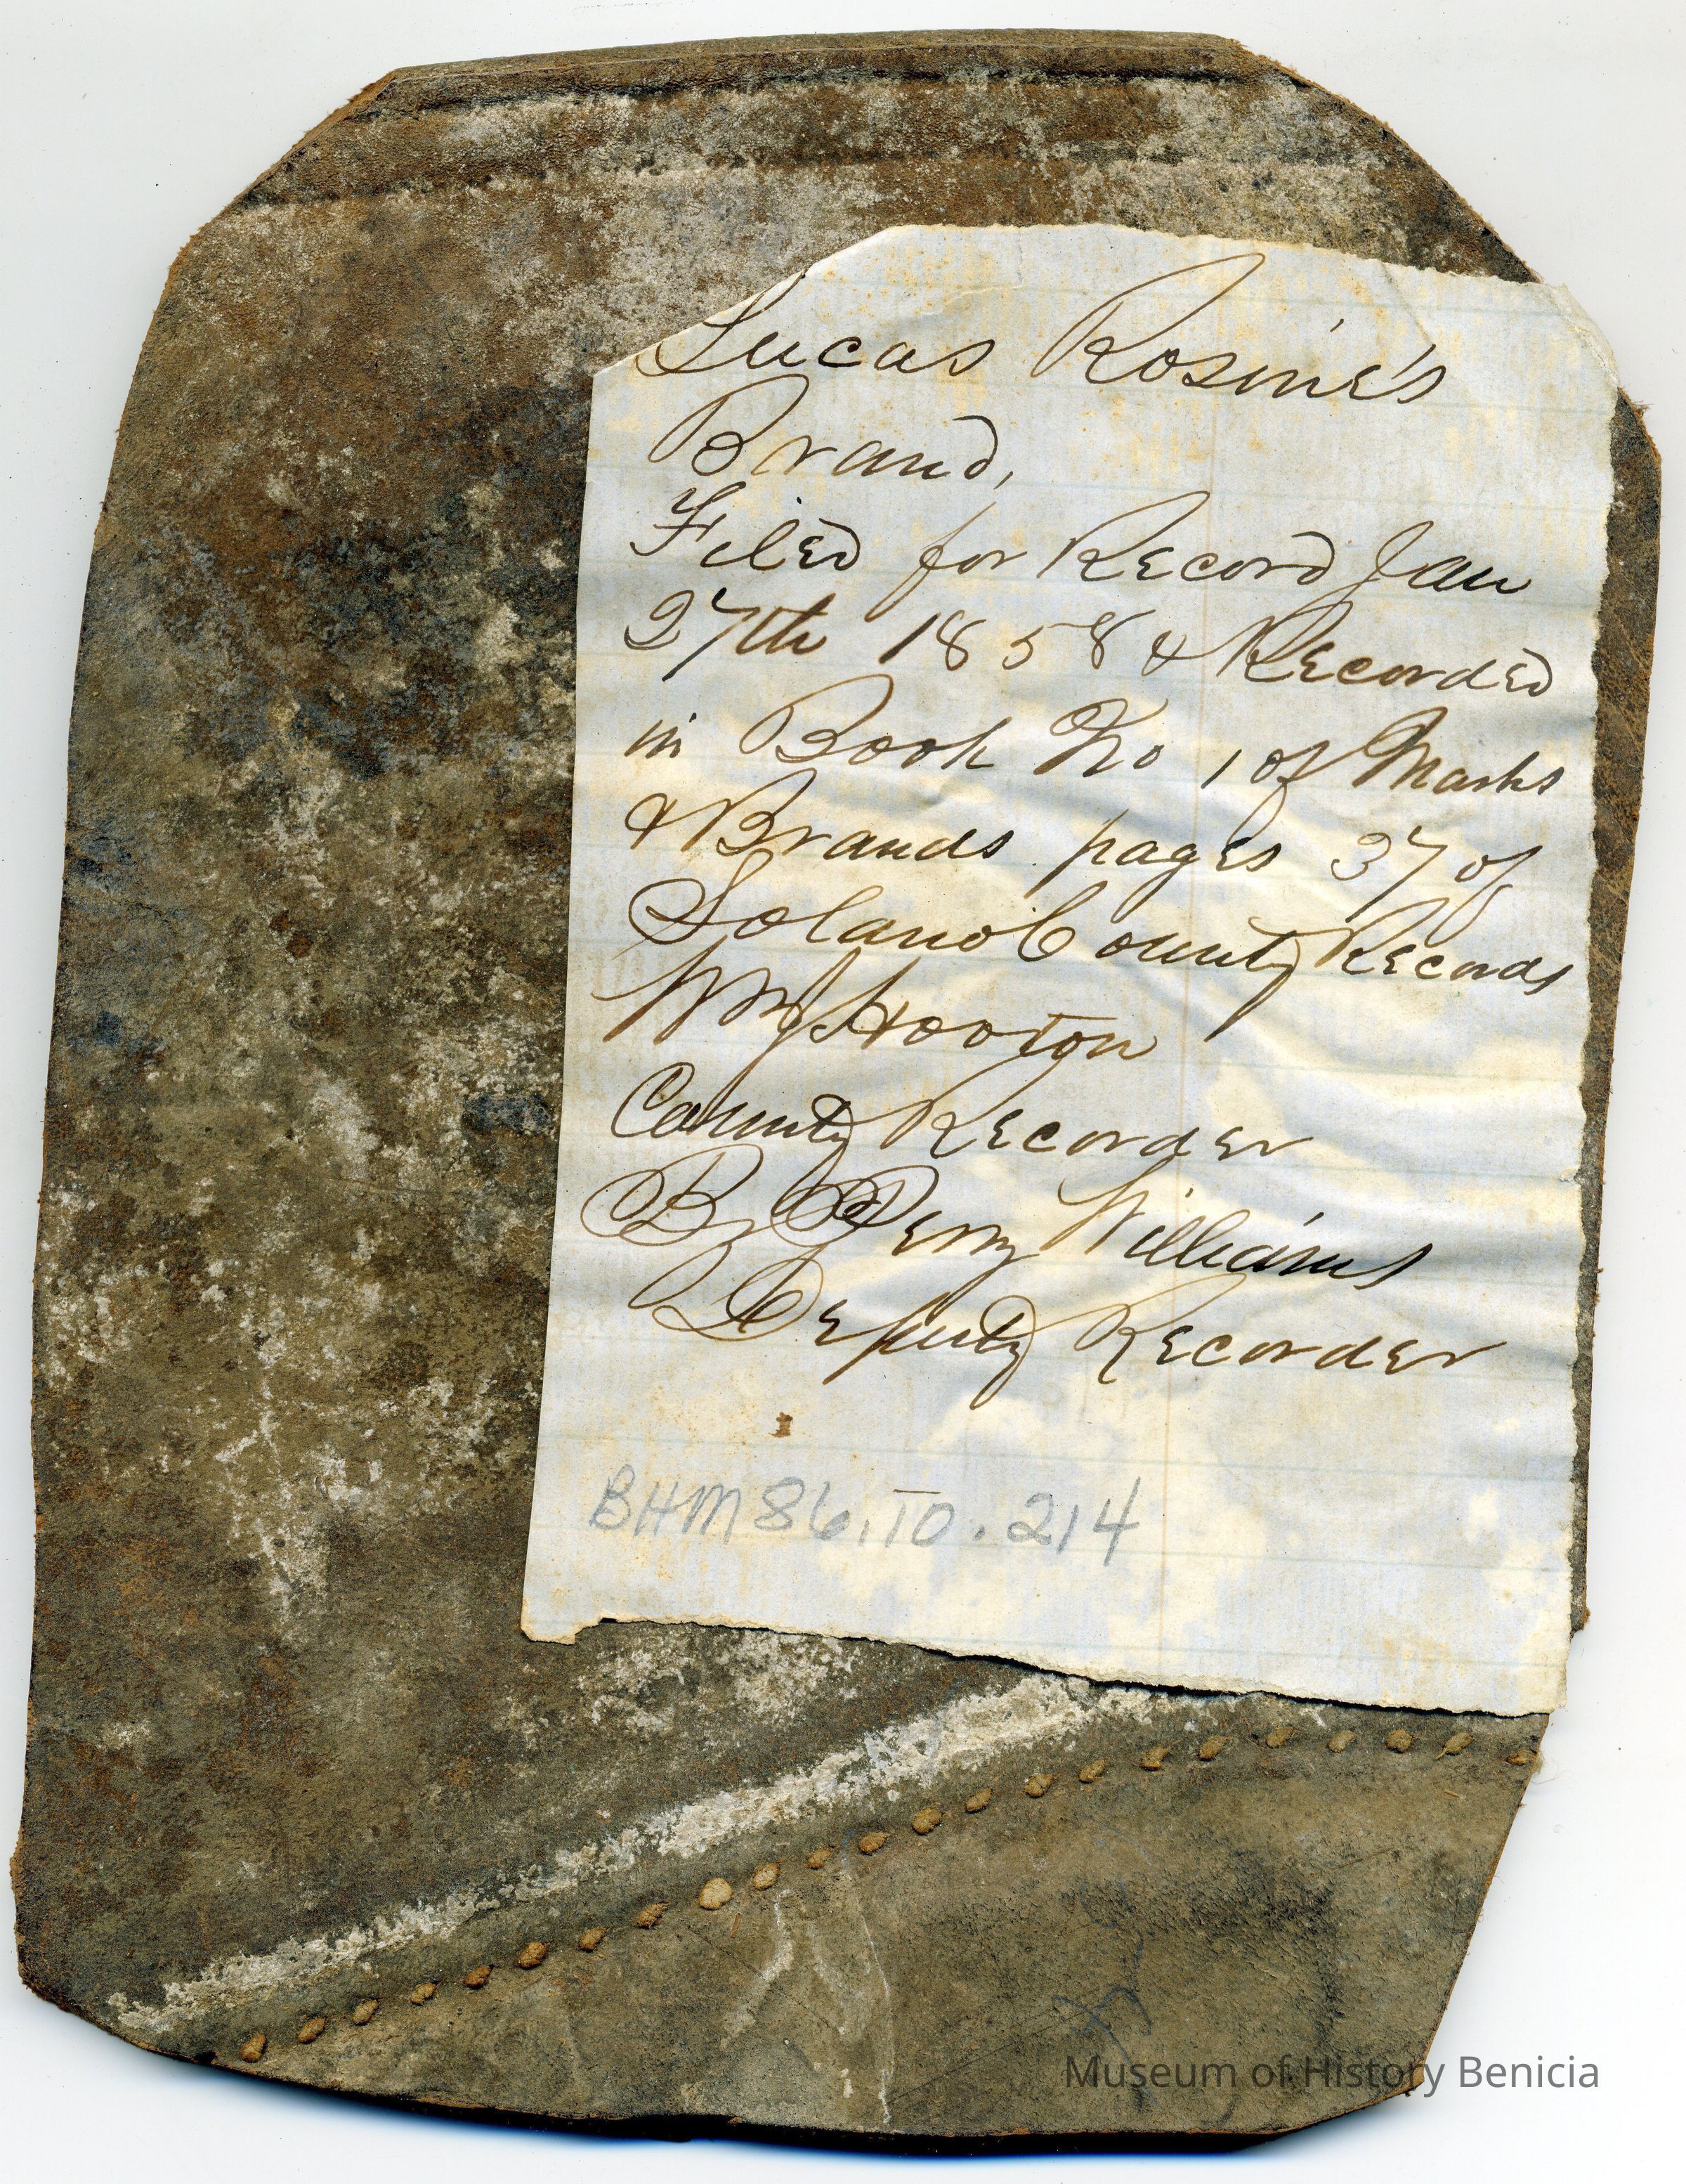 Lucas Rosine's
Brand,
Filed for Record Jan
27th 1858 & Recorded
in Book No 1 of Marks
& Brands pages 37 of
Solano County Records
Wm J Hooton
County Recorder
By Perry Williams
Deputy Recorder
BHM 86.10.214
Museum of History Benicia